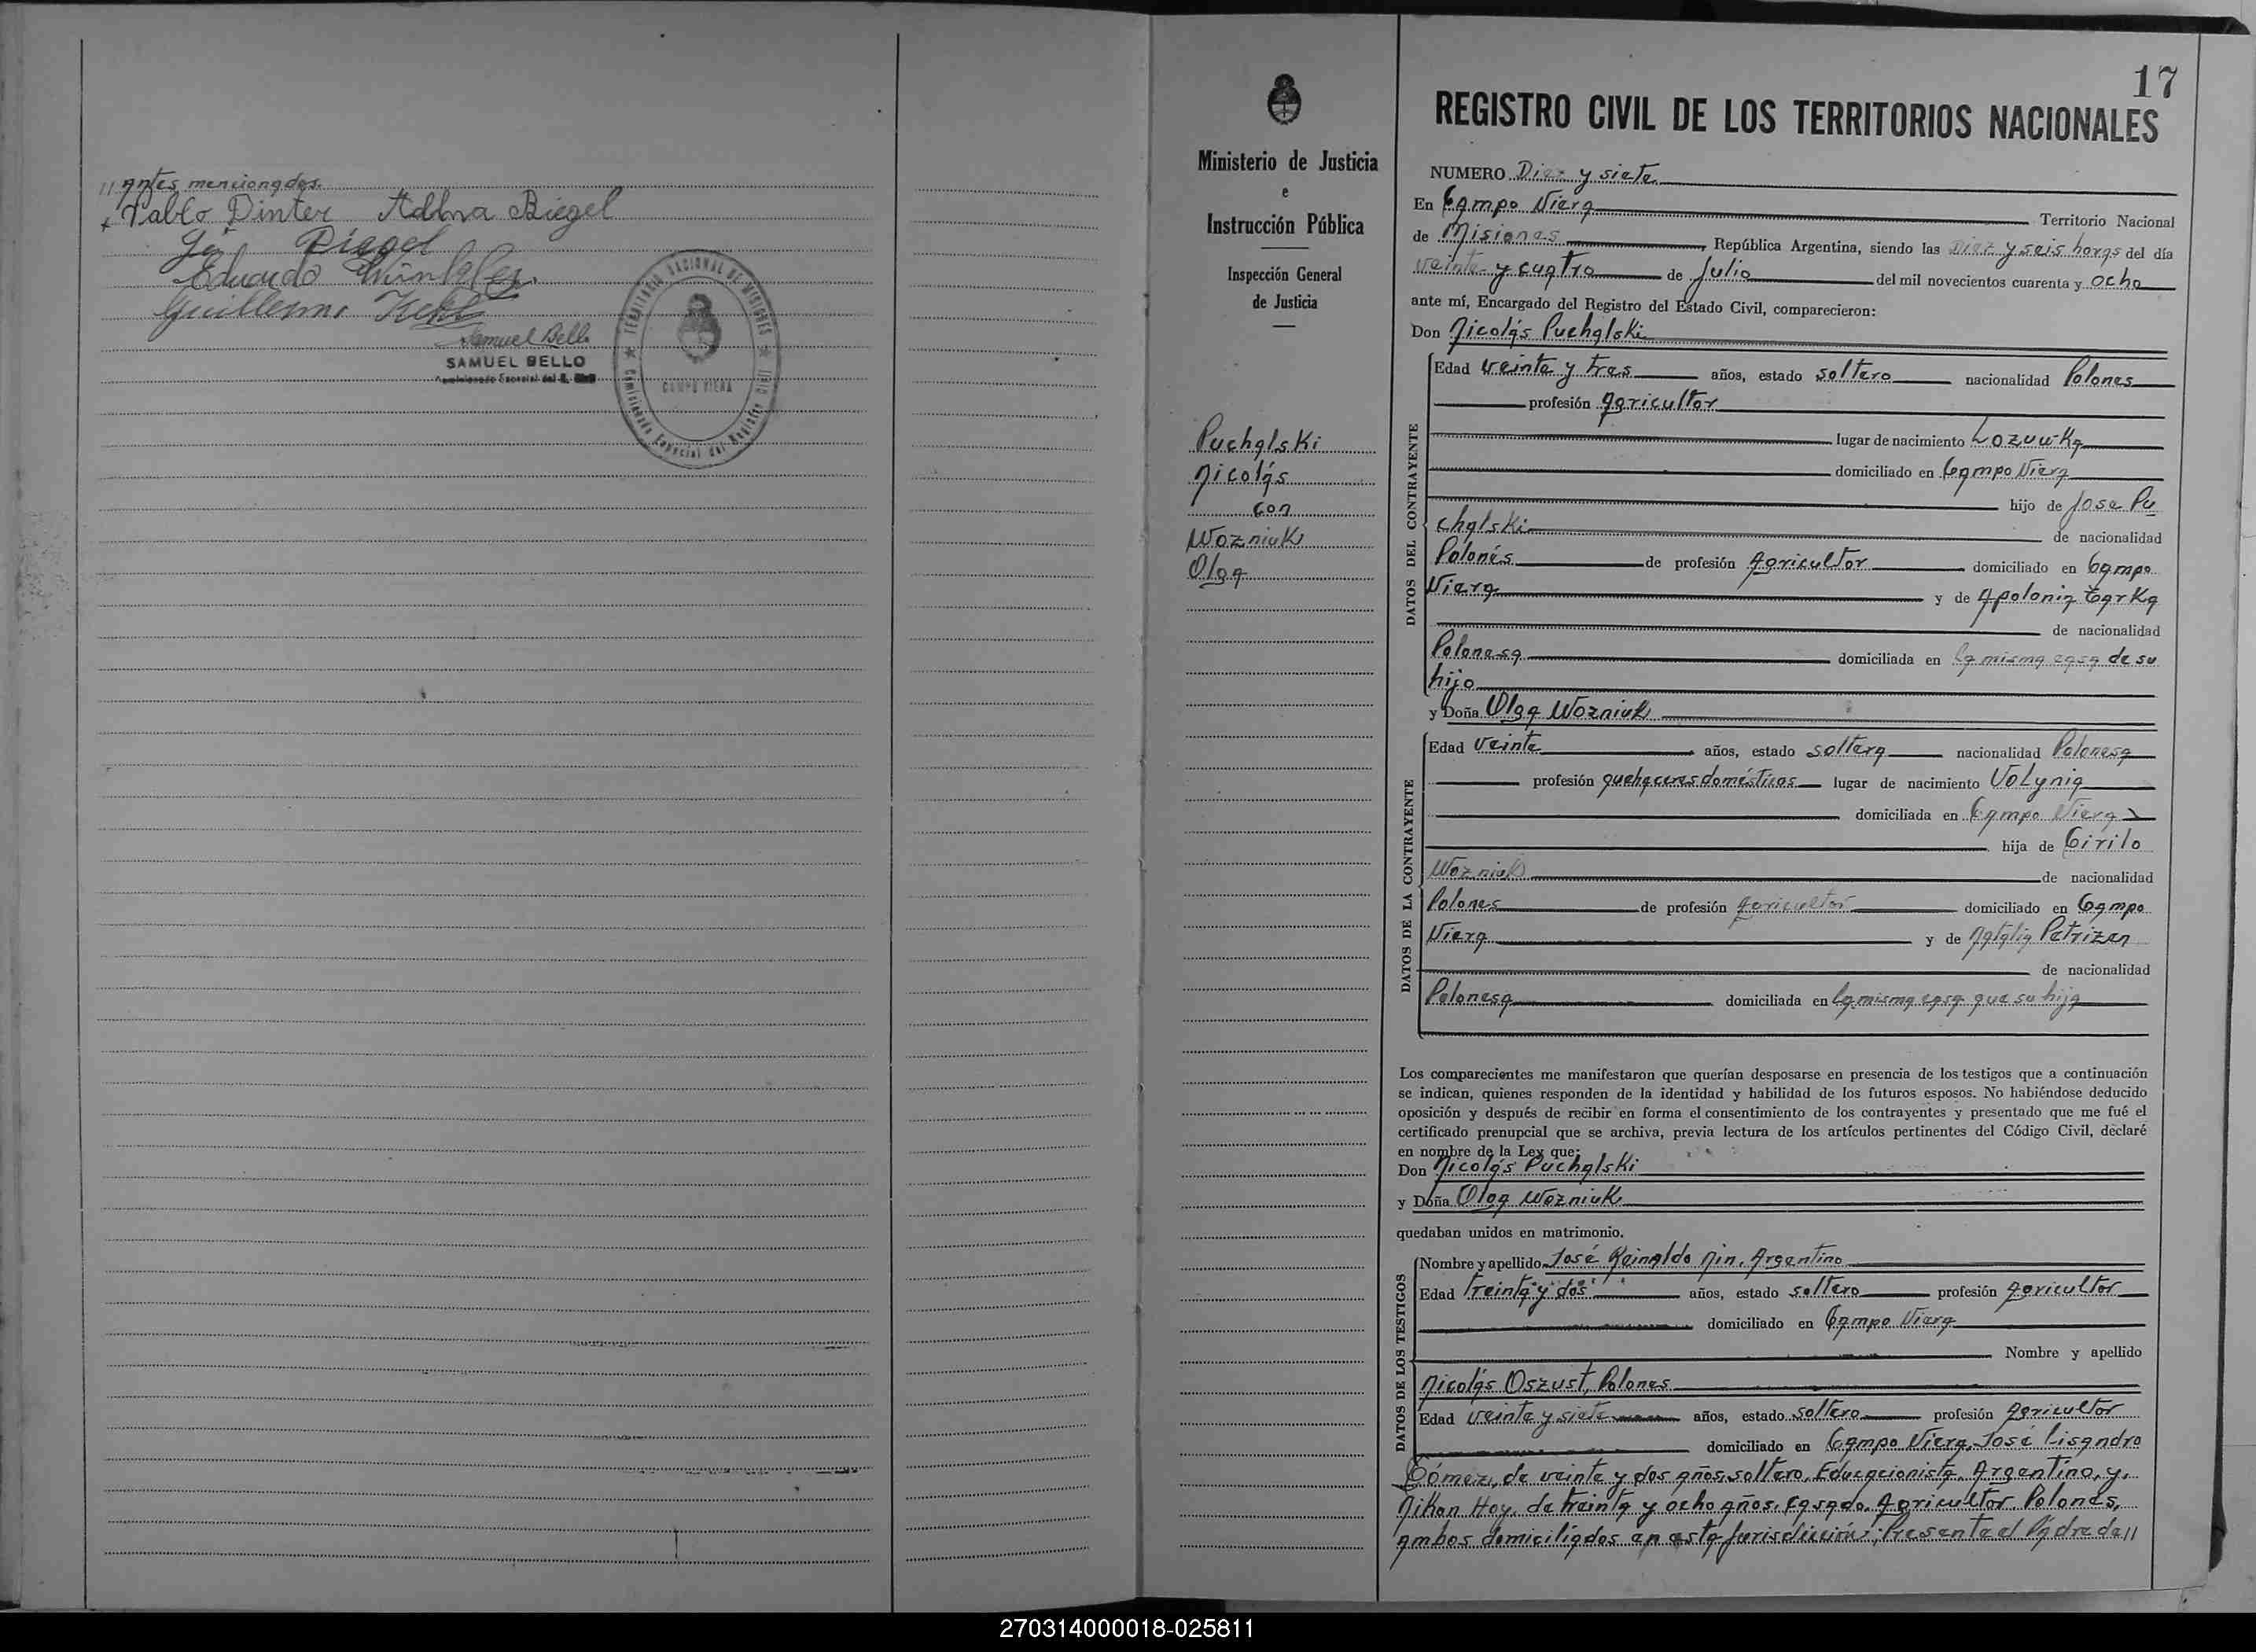 // antes mencionados.
Pablo Dinter Adelina Biegel
Biegel
Eduardo
Guillermo
Samuel Bello
SAMUEL BELLO
TERRITORIO NACIONAL DE MISIONES
CAMPO VIERA
Comisionado Especial del Registro Civil
Ministerio de Justicia
e
Instrucción Pública
Inspección General
de Justicia
Puchalski
Nicolás
con
Wozniuk
Olga
17
REGISTRO CIVIL DE LOS TERRITORIOS NACIONALES
NUMERO Diez y siete
En Campo Viera Territorio Nacional
de Misiones, República Argentina, siendo las Diez y seis horas del día
veinte y cuatro de Julio del mil novecientos cuarenta y ocho
ante mí, Encargado del Registro del Estado Civil, comparecieron:
Don Nicolás Puchalski
DATOS DEL CONTRAYENTE
Edad veinte y tres años, estado soltero nacionalidad Polones
profesión agricultor
lugar de nacimiento Lozuwka
domiciliado en Campo Viera
hijo de Jose Pu
chalski de nacionalidad
Polonés de profesión Agricultor domiciliado en Campo
Viera y de Apolonia Carka
de nacionalidad
Polonesa domiciliada en la misma casa de su
hijo
y Doña Olga Wozniuk
DATOS DE LA CONTRAYENTE
Edad veinte años, estado soltera nacionalidad Polonesa
profesión quehaceres domésticos lugar de nacimiento Volynia
domiciliada en Campo Viera
hija de Cirilo
Wozniuk de nacionalidad
Polones de profesión agricultor domiciliado en Campo
Viera y de Natalia Petrizen
de nacionalidad
Polonesa domiciliada en la misma casa que su hija
Los comparecientes me manifestaron que querían desposarse en presencia de los testigos que a continuación
se indican, quienes responden de la identidad y habilidad de los futuros esposos. No habiéndose deducido
oposición y después de recibir en forma el consentimiento de los contrayentes y presentado que me fué el
certificado prenupcial que se archiva, previa lectura de los artículos pertinentes del Código Civil, declaré
en nombre de la Ley que:
Don Nicolás Puchalski
y Doña Olga Wozniuk
quedaban unidos en matrimonio.
DATOS DE LOS TESTIGOS
Nombre y apellido José Reinaldo Nin, Argentino
Edad treinta y dos años, estado soltero profesión agricultor
domiciliado en Campo Viera
Nombre y apellido
Nicolás Oszust, Polones
Edad veinte y siete años, estado soltero profesión agricultor
domiciliado en Campo Viera, José Lisandro
Gómez, de veinte y dos años, soltero, Educacionista, Argentino, y
Nikon Hoy, de treinta y ocho años, casado, Agricultor, Polonés,
ambos domiciliados en esta jurisdicción; Presente el Pádre de //
270314000018-025811